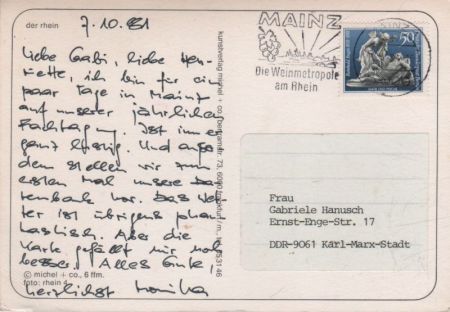 der rhein
7.10.81
Liebe Gabi, liebe Hen-
riette, ich bin für ein
paar Tage in Mainz
auf unserer jährlichen
Fachtagung. Ist immer
ganz lustig. Und außer
dem stellen wir zum
ersten Mal unsere Da-
tenbank vor. Das Wet-
ter ist übrigens phan-
tastisch. Aber die
Karte gefällt mir noch
besser. Alles Gute,
herzlichst Monika
© michel + co., 6 ffm.
foto: rhein 4
kunstverlag michel + co., 73, 6000 frankfurt/m.
MAINZ
Die Weinmetropole
am Rhein
50
Frau
Gabriele Hanusch
Ernst-Enge-Str. 17
DDR-9061 Karl-Marx-Stadt